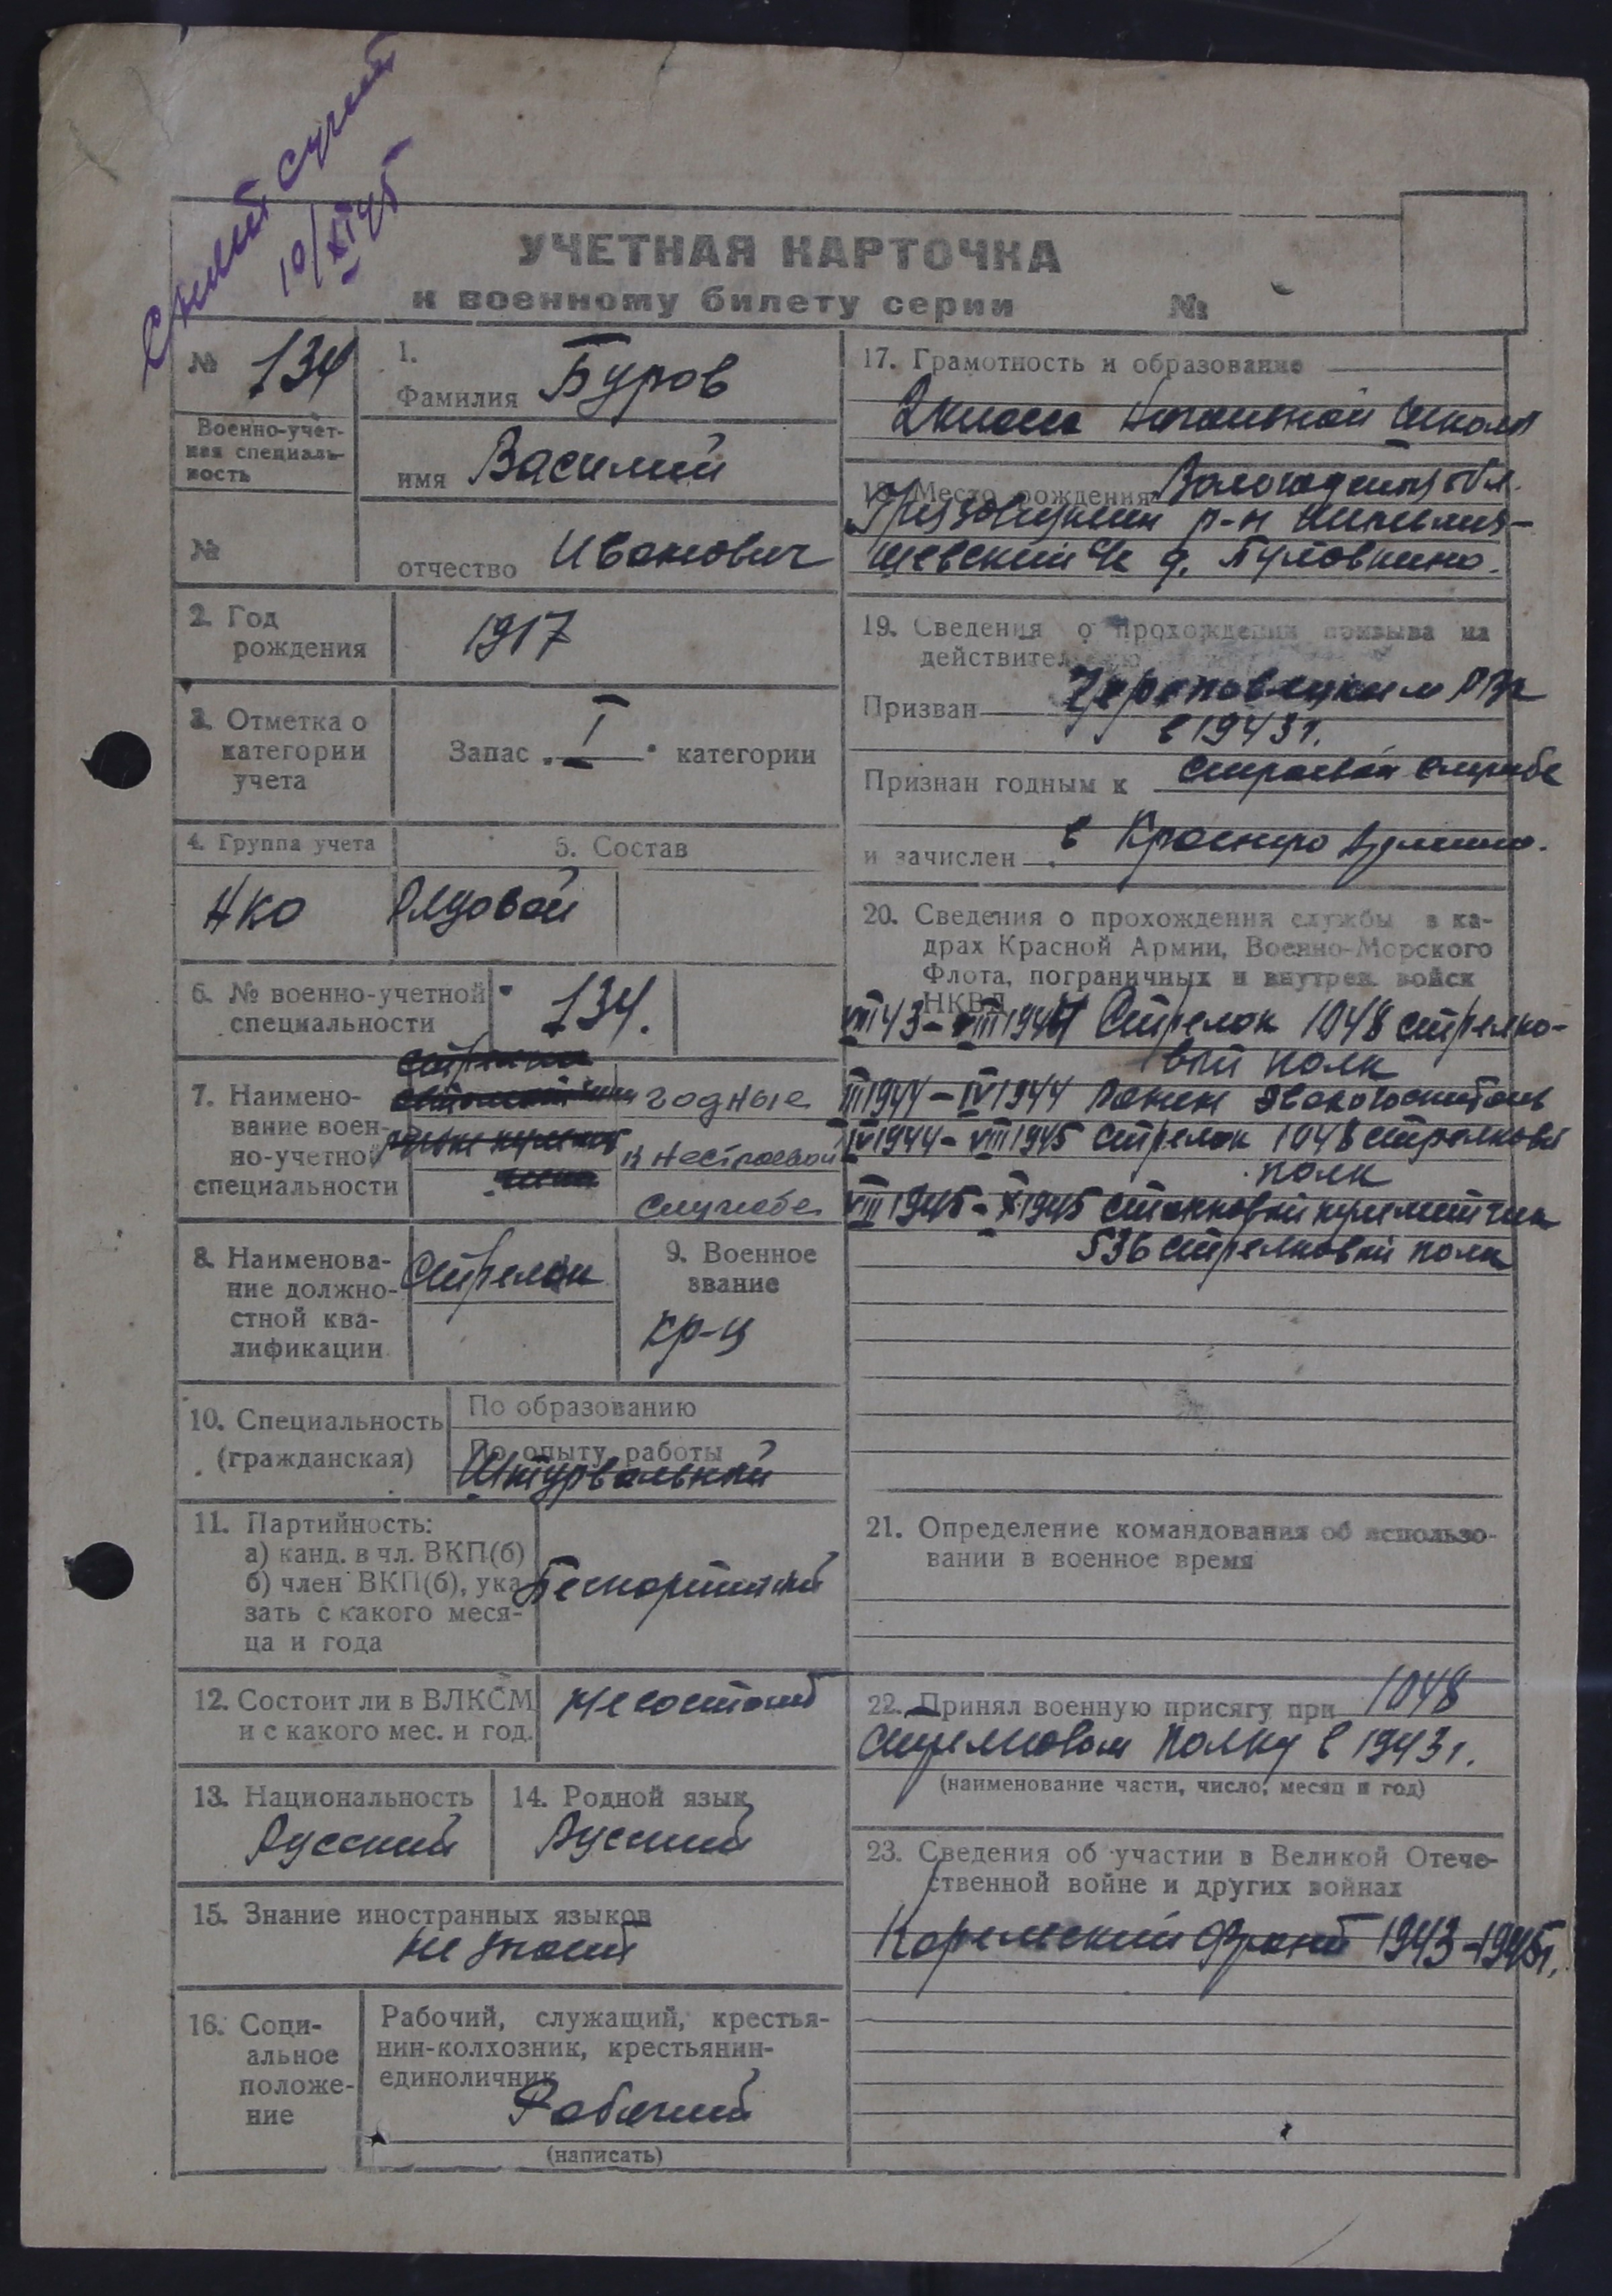 Снят с учета
10/XI 45
УЧЕТНАЯ КАРТОЧКА
к военному билету серии №
№ 134
Военно-учет-
ная специаль-
ность
№
1.
Фамилия Буров
имя Василий
отчество Иванович
2. Год
рождения
1917
3. Отметка о
категории
учета
Запас I категории
4. Группа учета
5. Состав
НКО
Рядовой
6. № военно-учетной
специальности
134.
7. Наимено-
вание воен-
но-учетной
специальности
годные
к нестроевой
службе
8. Наименова-
ние должно-
стной ква-
лификации
Стрелок
9. Военное
звание
кр-ц
10. Специальность
(гражданская)
По образованию
По опыту работы
Штурвальный
11. Партийность:
а) канд. в чл. ВКП(б)
б) член ВКП(б), ука-
зать с какого меся-
ца и года
Беспартийный
12. Состоит ли в ВЛКСМ
и с какого мес. и год.
Не состоит
13. Национальность
Русский
14. Родной язык
Русский
15. Знание иностранных языков
не знает
16. Соци-
альное
положе-
ние
Рабочий, служащий, крестья-
нин-колхозник, крестьянин-
единоличник
Рабочий
(написать)
17. Грамотность и образование
2 класса Начальной школы
18. Место рождения Вологодская обл.
р-н
с/с д.
19. Сведения о прохождении призыва на
действительную
Призван Череповецким РВК
в 1943 г.
Признан годным к строевой службе
и зачислен в Красную Армию.
20. Сведения о прохождении службы в ка-
драх Красной Армии, Военно-Морского
Флота, пограничных и внутрен. войск
НКВД
VII 43 - III 1944 Стрелок 1048 стрелко-
вый полк
III 1944 - IV 1944 Ранен Эвакогоспиталь
IV 1944 - VIII 1945 Стрелок 1048 стрелковый
полк
VIII 1945 - X 1945 Станковый пулеметчик
536 стрелковый полк
21. Определение командования об использо-
вании в военное время
22. Принял военную присягу при 1048
стрелковом полку в 1943 г.
(наименование части, число, месяц и год)
23. Сведения об участии в Великой Отече-
ственной войне и других войнах
Карельский фронт 1943-1945 г.